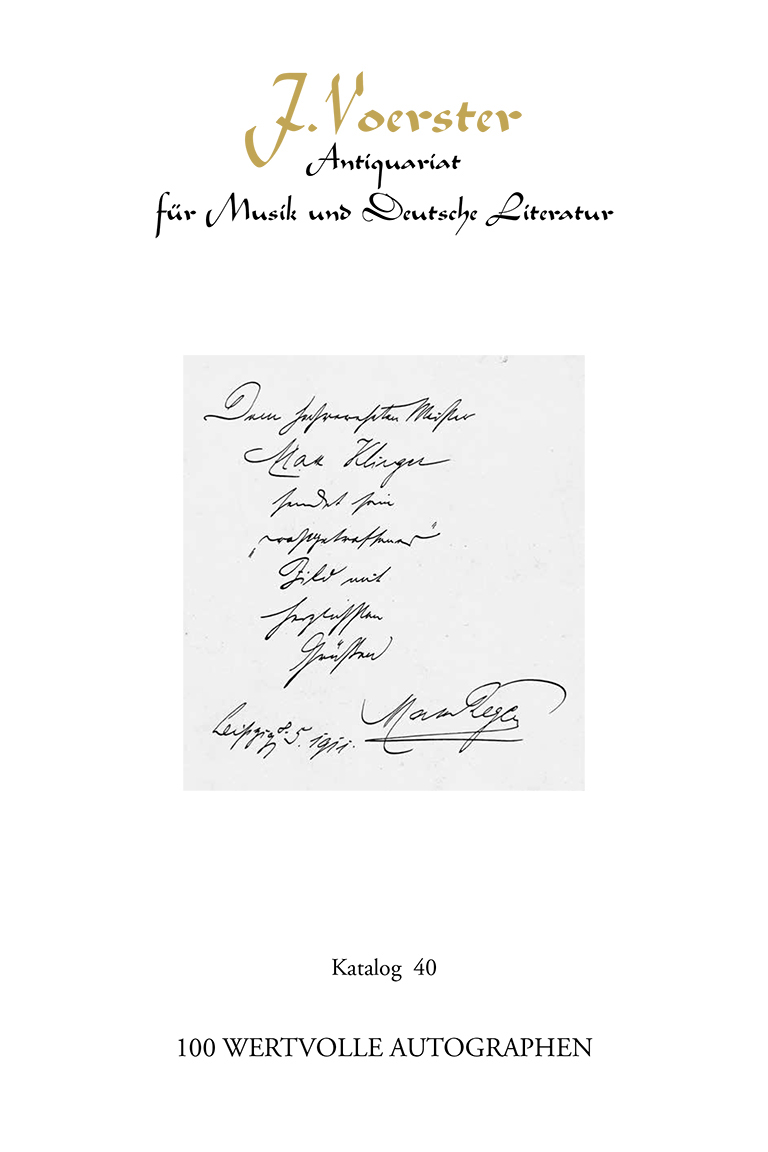 J. Voerster
Antiquariat
für Musik und Deutsche Literatur
Dem hochverehrten Meister
Max Klinger
sendet sein
„wohlgetroffenes"
Bild mit
herzlichsten
Grüßen
Leipzig 8. 5. 1911.
Max Reger
Katalog 40
100 WERTVOLLE AUTOGRAPHEN